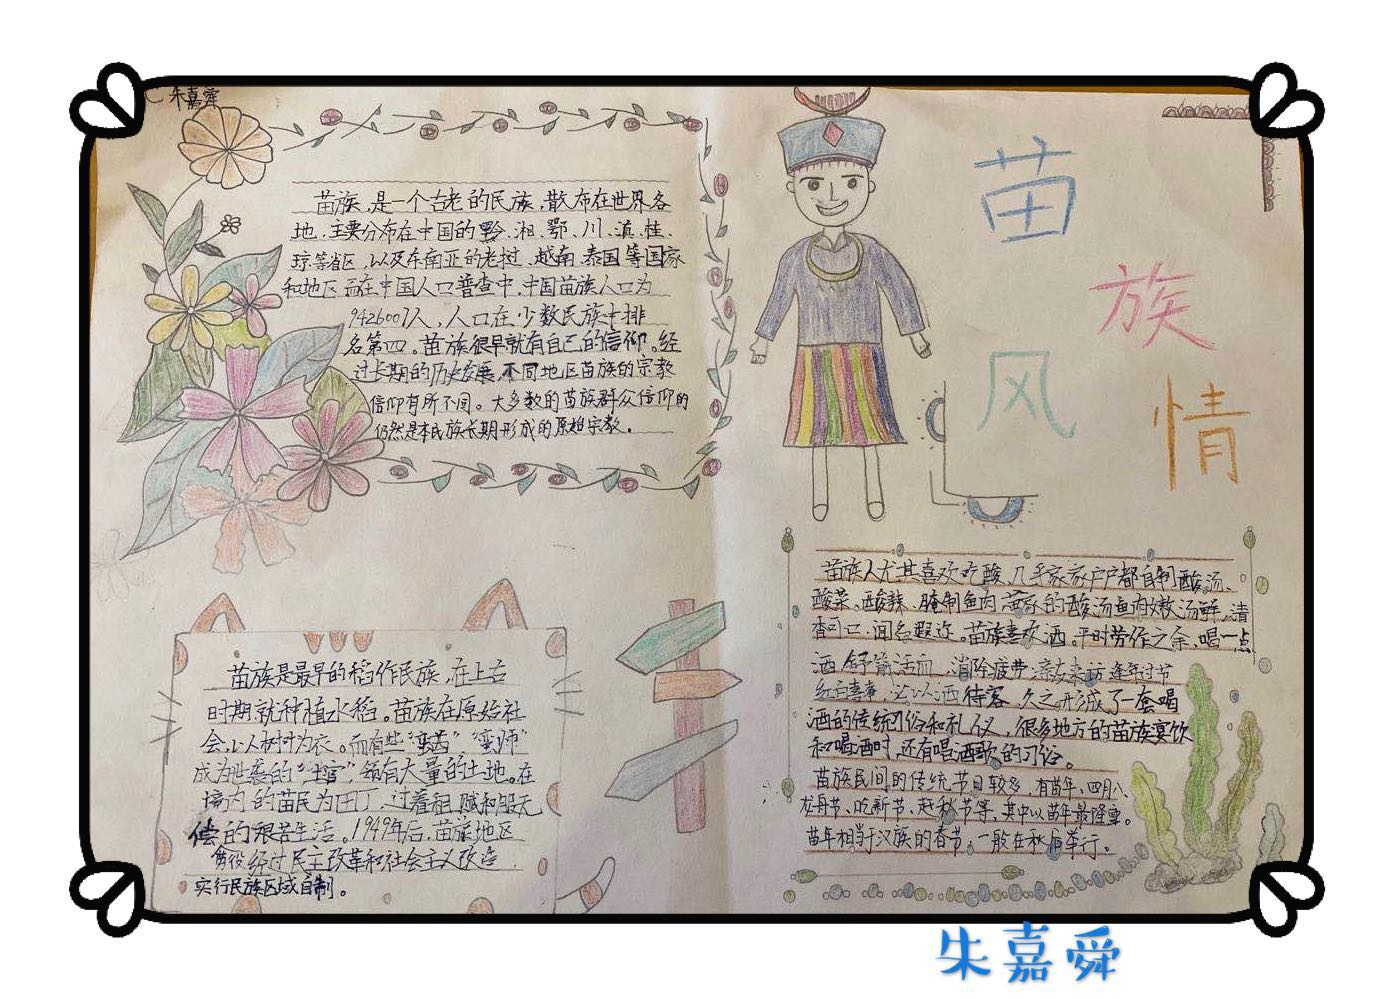 朱嘉舜
苗族,是一个古老的民族,散布在世界各
地,主要分布在中国的黔、湘、鄂、川、滇、桂、
琼等省区,以及东南亚的老挝、越南、泰国等国家
和地区。而在中国人口普查中,中国苗族人口为
9426007人,人口在少数民族中排
名第四。苗族很早就有自己的信仰。经
过长期的历史发展,不同地区苗族的宗教
信仰有所不同。大多数的苗族群众信仰的
仍然是本民族长期形成的原始宗教。
苗族是最早的稻作民族,在上古
时期就种植水稻。苗族在原始社
会,以树叶为衣。而有些"蛮酋""蛮帅"
成为世袭的"土官",领有大量的土地。在
境内的苗民为田丁,过着租赋和服无
偿的艰苦生活。1949年后,苗族地区
经过民主改革和社会主义改造,
实行民族区域自制。
苗
族
风
情
苗族人尤其喜欢吃酸,几乎家家户户都自制酸汤、
酸菜。酸辣、腌制鱼肉,苗家的酸汤鱼肉嫩汤鲜,清
香可口,闻名遐迩。苗族喜欢酒。平时劳作之余,喝一点
酒舒筋活血,消除疲费,亲友来访,逢年过节
红白喜事,必以酒待客,久之形成了一套喝
酒的传统习俗和礼仪,很多地方的苗族宴饮
和喝酒时,还有唱酒歌的习俗。
苗族民间的传统节日较多,有苗年、四月八、
龙舟节、吃新节、赶秋节等,其中以苗年最隆重。
苗年相当于汉族的春节,一般在秋后举行。
朱嘉舜